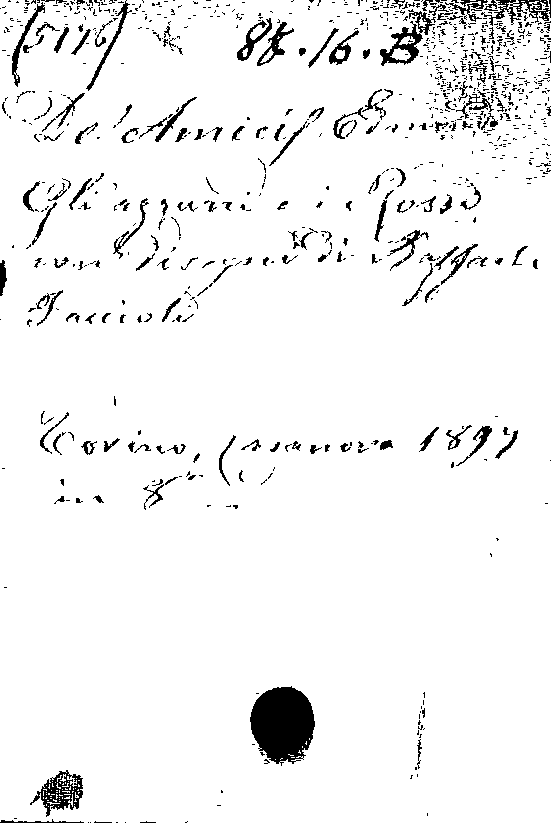 (5176) 88.16.B
De' Amicis Edmondo
Gli azzurri e i Rossi
con disegni di Raffaele
Faccioli
Torino, Casanova 1897
in 8°